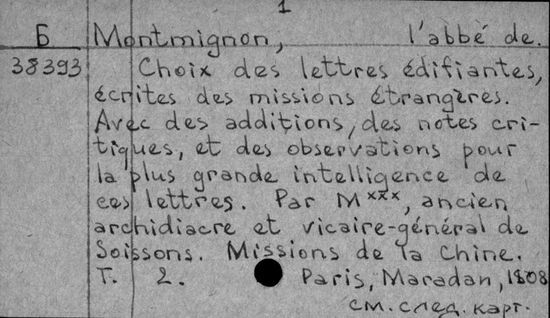 1
Б Montmignon, l'abbé de.
38393 Choix des lettres édifiantes,
écrites des missions étrangères.
Avec des additions, des notes cri-
tiques, et des observations pour
la plus grande intelligence de
ces lettres. Par M***, ancien
archidiacre et vicaire-général de
Soissons. Missions de la Chine.
T. 2. Paris, Maradan, 1808
см. след. карт.